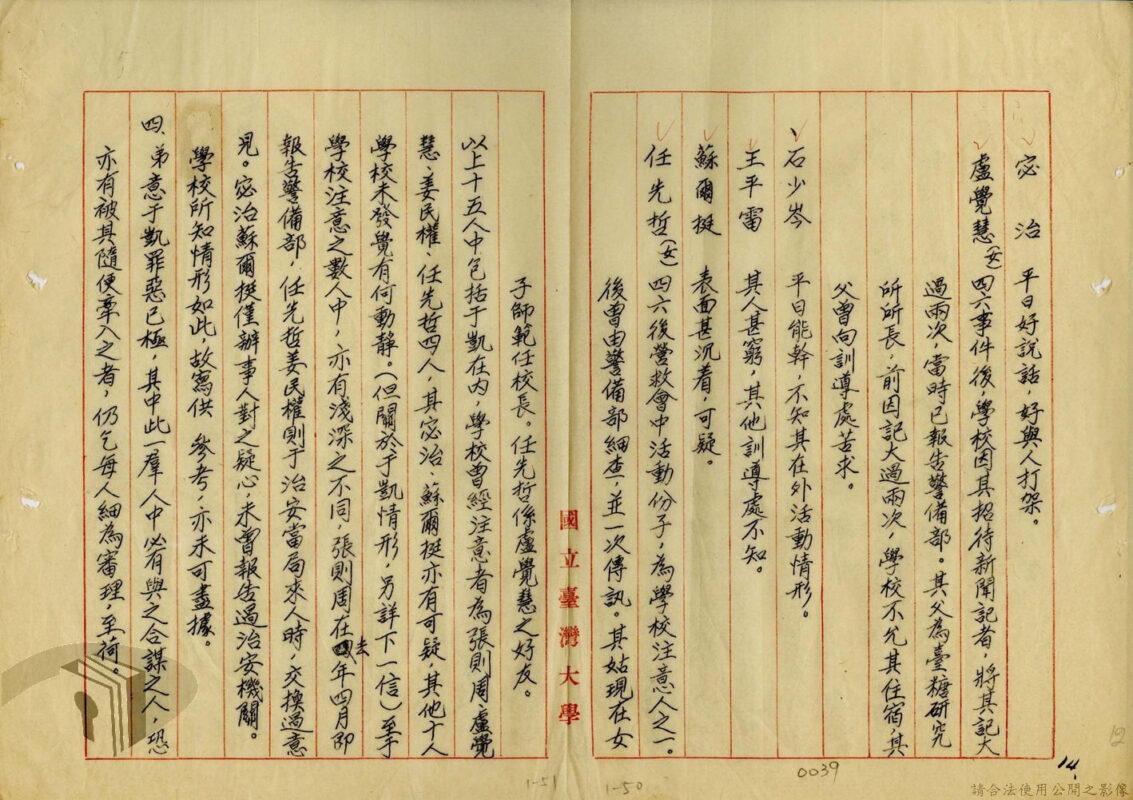 宓　治　平日好說話，好與人打架。
盧覺慧(女)　四六事件後，學校因其招待新聞記者，將其記大
過兩次，當時已報告警備部。其父為臺糖研究
所所長，前因記大過兩次，學校不允其住宿，其
父曾向訓導處苦求。
、石少岑　平日能幹，不知其在外活動情形。
王平雷　其人甚窮，其他訓導處不知。
蘇爾挺　表面甚沉着，可疑。
任先哲(女)　四六後營救會中活動份子，為學校注意人之一。
後曾由警備部細查，並一次傳訊。其姑現在女
國立臺灣大學
子師範任校長。任先哲係盧覺慧之好友。
以上十五人中包括于凱在內，學校曾經注意者為張則周盧覺
慧、姜民權、任先哲四人，其宓治、蘇爾挺亦有可疑，其他十人
學校未發覺有何動靜。（但關於于凱情形，另詳下一信）至于
學校注意之數人中，亦有淺深之不同，張則周在去年四月即
報告警備部，任先哲姜民權則于治安當局來人時，交換過意
見。宓治蘇爾挺僅辦事人對之疑心，未曾報告過治安機關。
學校所知情形如此，故寫供　參考，亦未可盡據。
四、弟意于凱罪惡已極，其中此一羣人中必有與之合謀之人，恐
亦有被其隨便牽入之者，仍乞每人細為審理，至荷。
14.
12
0039
1-50
1-51
請合法使用公開之影像